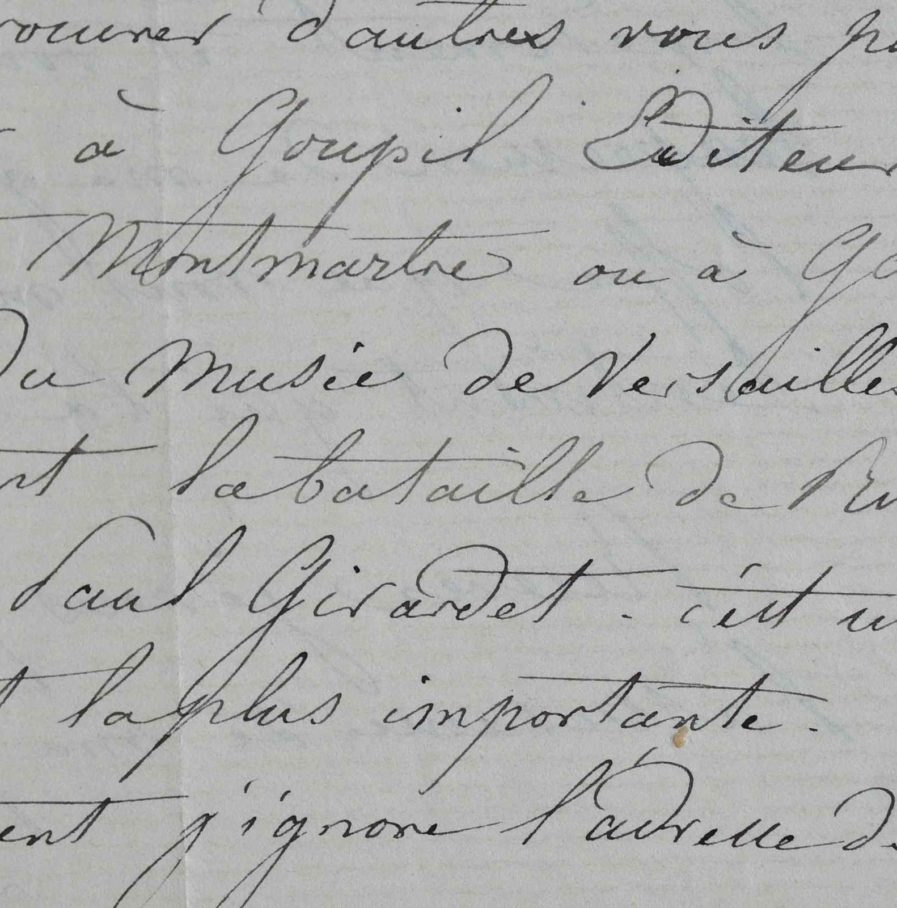 rocurer d'autres vous p
à Goupil Editeur
Montmartre ou à G
Du Musée de Versailles
nt la bataille de R
Paul Girardet - c'est u
t la plus importante -
ent j'ignore l'adresse d